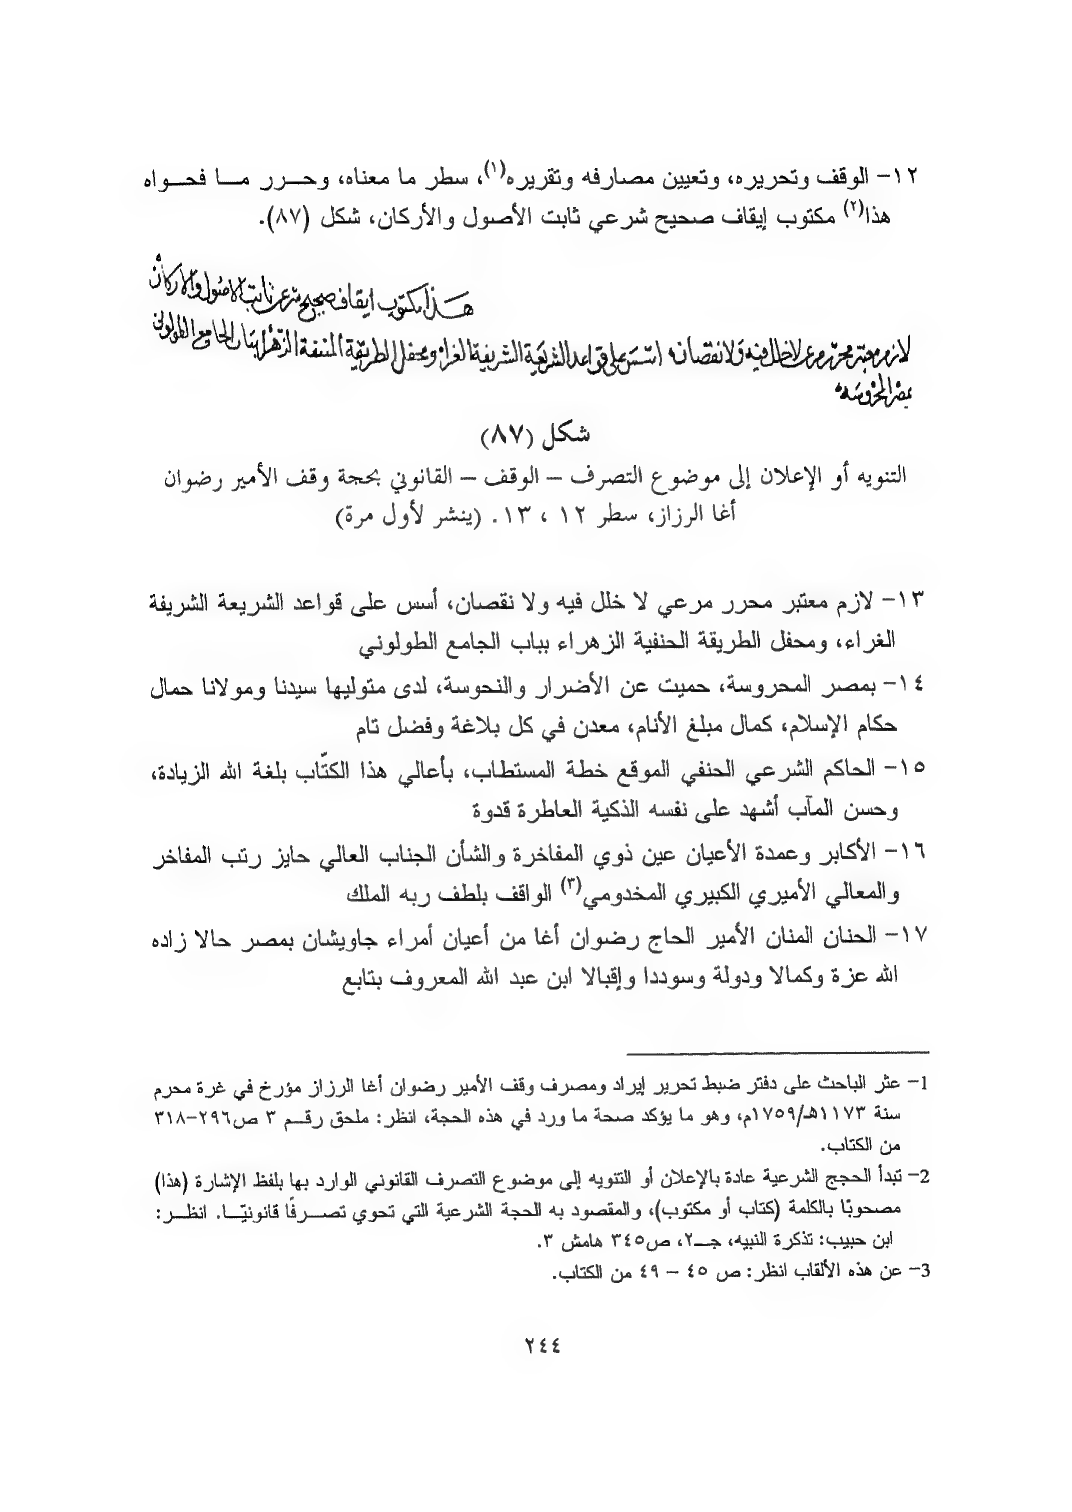 ١٢- الوقف وتحريره، وتعيين مصارفه وتقريره(١)، سطر ما معناه، وحـــرر مـــا فحـــواه
هذا(٢) مكتوب إيقاف صحيح شرعي ثابت الأصول والأركان، شكل (٨٧).
هذا مكتوب ايقاف صحيح شرعي ثابت الاصول والاركان
لازم معتبر محرر مرعي لا خلل فيه ولا نقصان اسس على قواعد الشريعة الشريفة الغراء ومحفل الطريقة الحنفية الزهراء بباب الجامع الطولوني
بمصر المحروسة
شكل (٨٧)
التنويه أو الإعلان إلى موضوع التصرف – الوقف – القانوني بحجة وقف الأمير رضوان
أغا الرزاز، سطر ١٢ ، ١٣. (ينشر لأول مرة)
١٣- لازم معتبر محرر مرعي لا خلل فيه ولا نقصان، أسس على قواعد الشريعة الشريفة
الغراء، ومحفل الطريقة الحنفية الزهراء بباب الجامع الطولوني
١٤- بمصر المحروسة، حميت عن الأضرار والنحوسة، لدى متوليها سيدنا ومولانا حمال
حكام الإسلام، كمال مبلغ الأنام، معدن في كل بلاغة وفضل تام
١٥- الحاكم الشرعي الحنفي الموقع خطة المستطاب، بأعالي هذا الكتّاب بلغة الله الزيادة،
وحسن المآب أشهد على نفسه الذكية العاطرة قدوة
١٦- الأكابر وعمدة الأعيان عين ذوي المفاخرة والشأن الجناب العالي حايز رتب المفاخر
والمعالي الأميري الكبيري المخدومي(٣) الواقف بلطف ربه الملك
١٧- الحنان المنان الأمير الحاج رضوان أغا من أعيان أمراء جاويشان بمصر حالا زاده
الله عزة وكمالا ودولة وسوددا وإقبالا ابن عبد الله المعروف بتابع
1- عثر الباحث على دفتر ضبط تحرير إيراد ومصرف وقف الأمير رضوان أغا الرزاز مؤرخ في غرة محرم
سنة ١١٧٣هـ/١٧٥٩م، وهو ما يؤكد صحة ما ورد في هذه الحجة، انظر: ملحق رقـــم ٣ ص٢٩٦-٣١٨
من الكتاب.
2- تبدأ الحجج الشرعية عادة بالإعلان أو التنويه إلى موضوع التصرف القانوني الوارد بها بلفظ الإشارة (هذا)
مصحوبًا بالكلمة (كتاب أو مكتوب)، والمقصود به الحجة الشرعية التي تحوي تصـــرفًا قانونيًـــا. انظـــر:
ابن حبيب: تذكرة النبيه، جـــ٢، ص٣٤٥ هامش ٣.
3- عن هذه الألقاب انظر: ص ٤٥ – ٤٩ من الكتاب.
٢٤٤